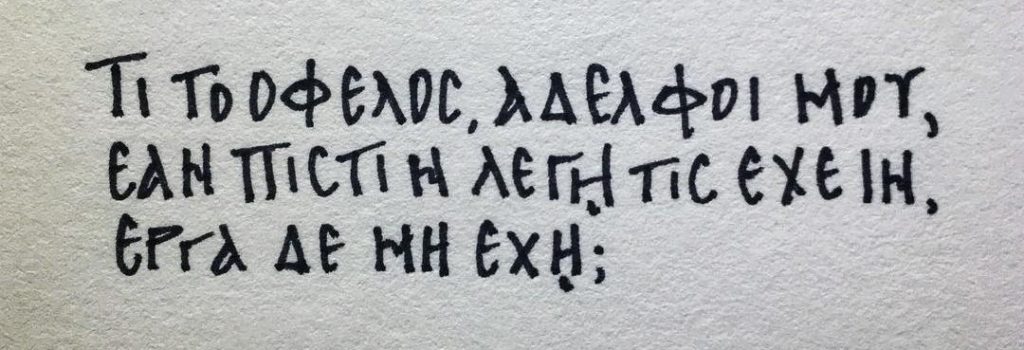 ΤΙ ΤΟ ΟΦΕΛΟϹ, ΑΔΕΛΦΟΙ ΜΟΥ,
ΕΑΝ ΠΙϹΤΙΝ ΛΕΓῌ ΤΙϹ ΕΧΕΙΝ,
ΕΡΓΑ ΔΕ ΜΗ ΕΧῌ;